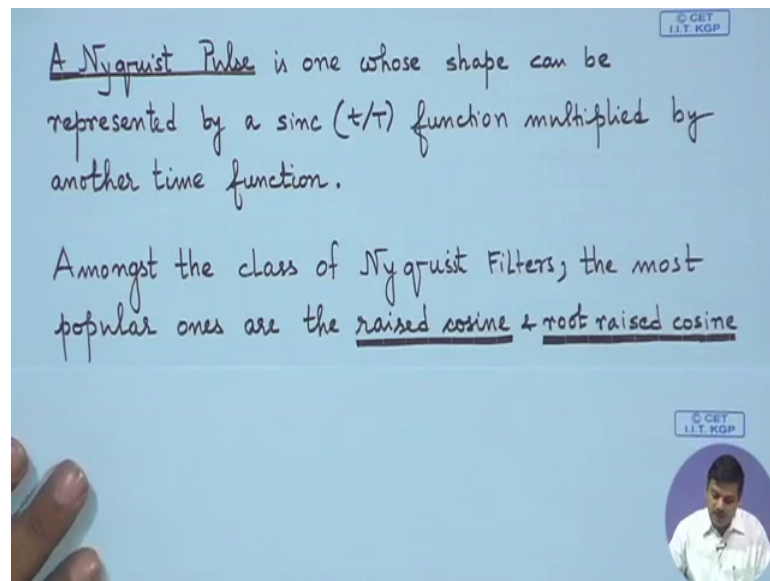 © CET
I.I.T. KGP
A Nyquist Pulse is one whose shape can be
represented by a sinc (t/T) function multiplied by
another time function.
Amongst the class of Nyquist Filters, the most
popular ones are the raised cosine & root raised cosine
© CET
I.I.T. KGP